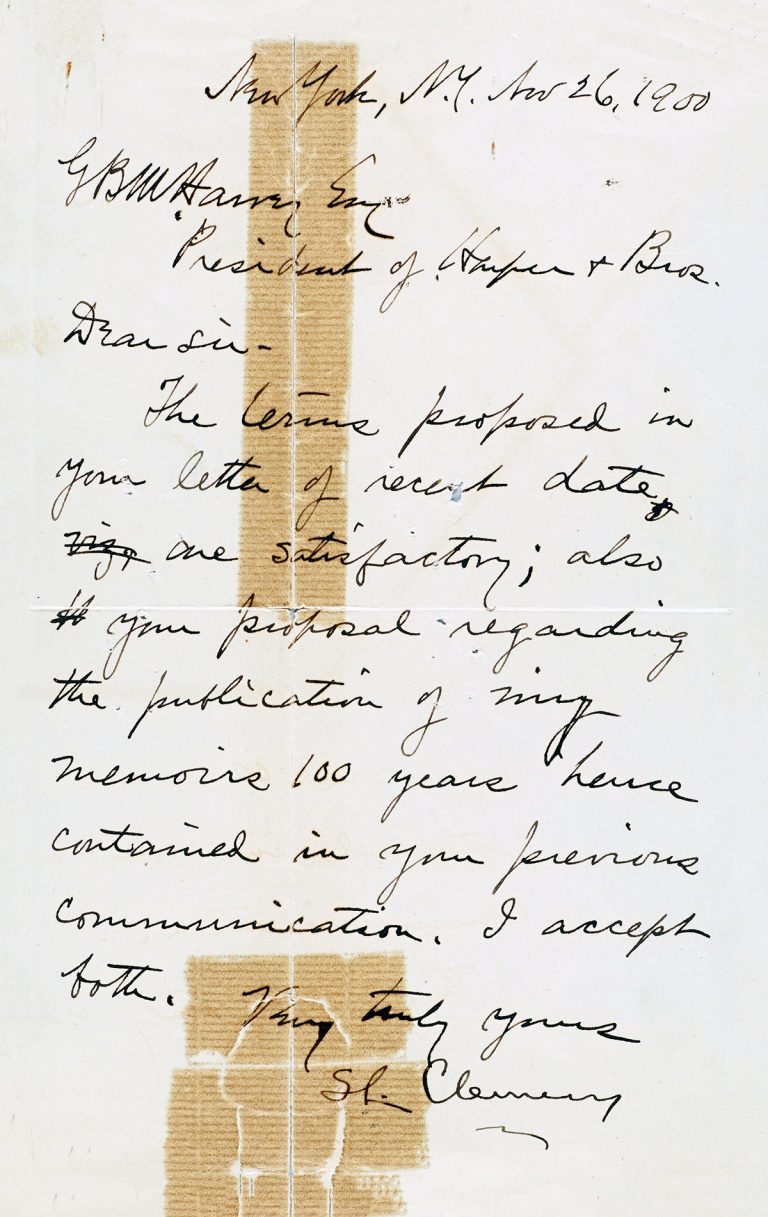 New York, N.Y. Nov 26, 1900
G B M Harvey Esq
President of Harper & Bros.
Dear Sir -
The terms proposed in
your letter of recent date,
viz, are satisfactory; also
your proposal regarding
the publication of my
memoirs 100 years hence
contained in your previous
communication. I accept
both.
Very truly yours
SL. Clemens